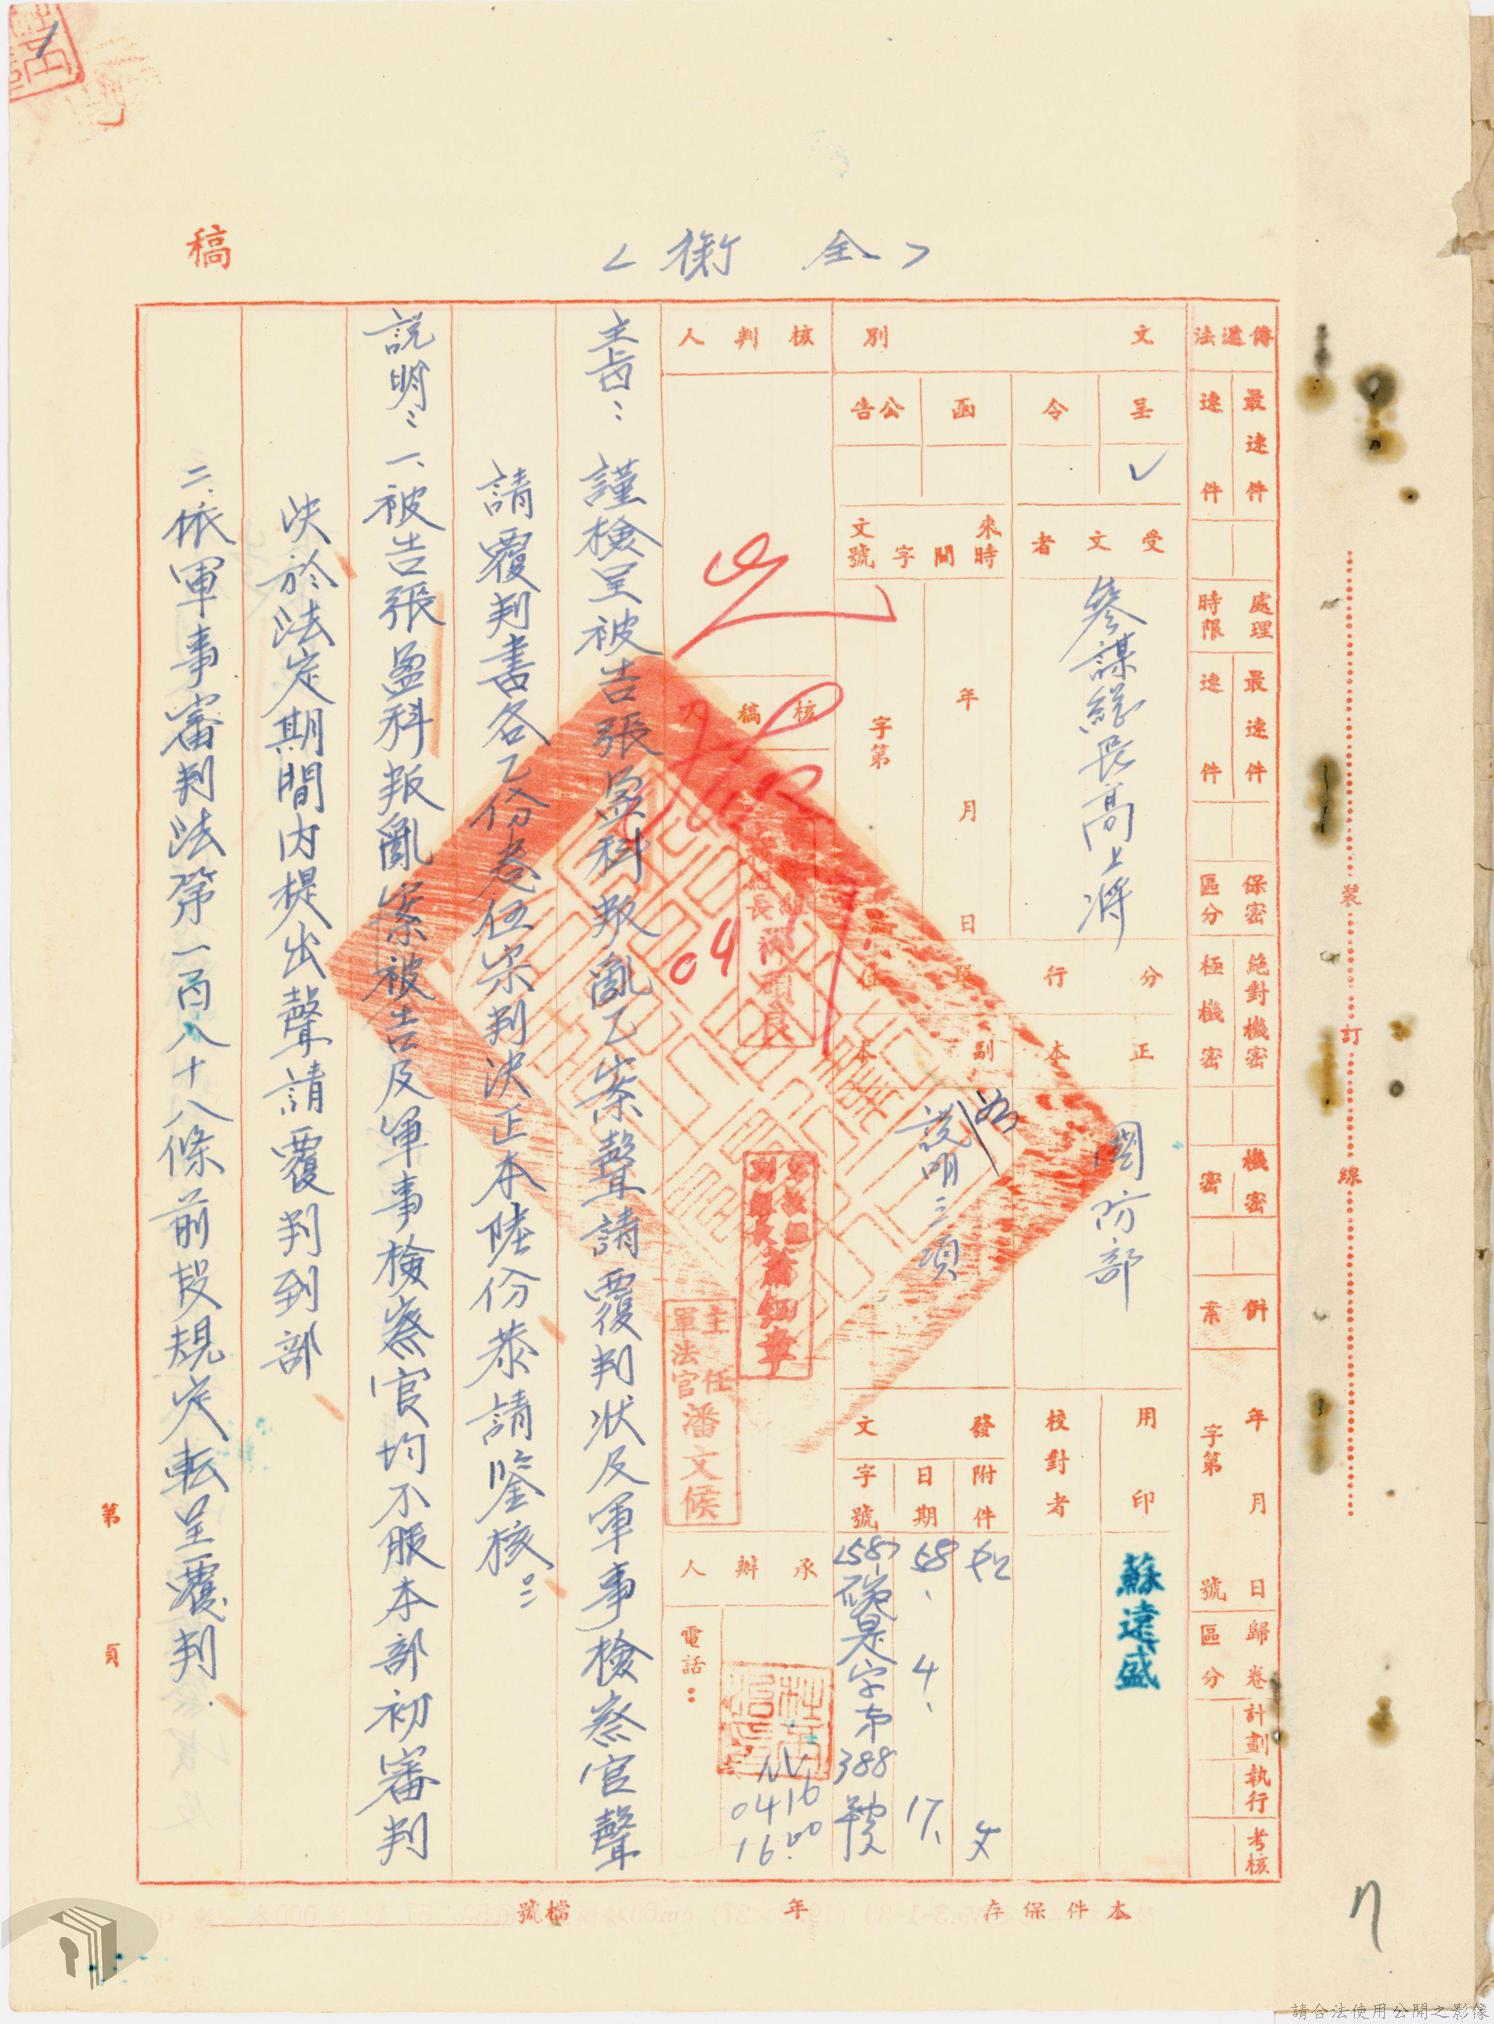 稿
＜銜全＞
傳遞法
最速件
速件
處理時限
最速件
速件
保密區分
絕對機密
極機密
機密
密
併案
年月日
字第號
歸卷區分
計劃執行考核
文別
呈
令
函
公告
✓
受文者
參謀總長高上將
來文
時間
字號
年月日
字第
分行單位
正本
國防部
副本
說明三項
用印
蘇遠盛
校對者
發文
附件
如文
日期
58、4、17、
字號
(58)
字第388號
核判人
核稿
主任軍法官潘文侯
承辦人
電話：
0416
16.00
主旨：謹檢呈被告張盈科叛亂乙案聲請覆判狀及軍事檢察官聲
請覆判書各乙份卷伍宗判決正本陸份恭請鑒核。
說明：一、被告張盈科叛亂案被告及軍事檢察官均不服本部初審判
決於法定期間內提出聲請覆判到部
二、依軍事審判法第一百八十八條前段規定転呈覆判.
第 頁
本件保存 年 檔號
裝訂線
7
請合法使用公開之影像